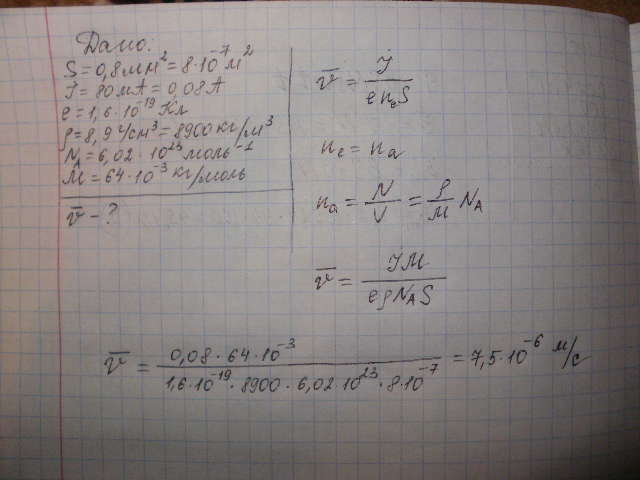 Дано.
S = 0,8 мм² = 8·10⁻⁷ м²
I = 80 мА = 0,08 А
e = 1,6·10⁻¹⁹ Кл
ρ = 8,9 г/см³ = 8900 кг/м³
N_A = 6,02·10²³ моль⁻¹
M = 64·10⁻³ кг/моль
v̄ - ?
v̄ = I / (e n_e S)
n_e = n_a
n_a = N/V = ρ/M N_A
v̄ = IM / (eρN_A S)
v̄ = (0,08·64·10⁻³) / (1,6·10⁻¹⁹·8900·6,02·10²³·8·10⁻⁷) = 7,5·10⁻⁶ м/с